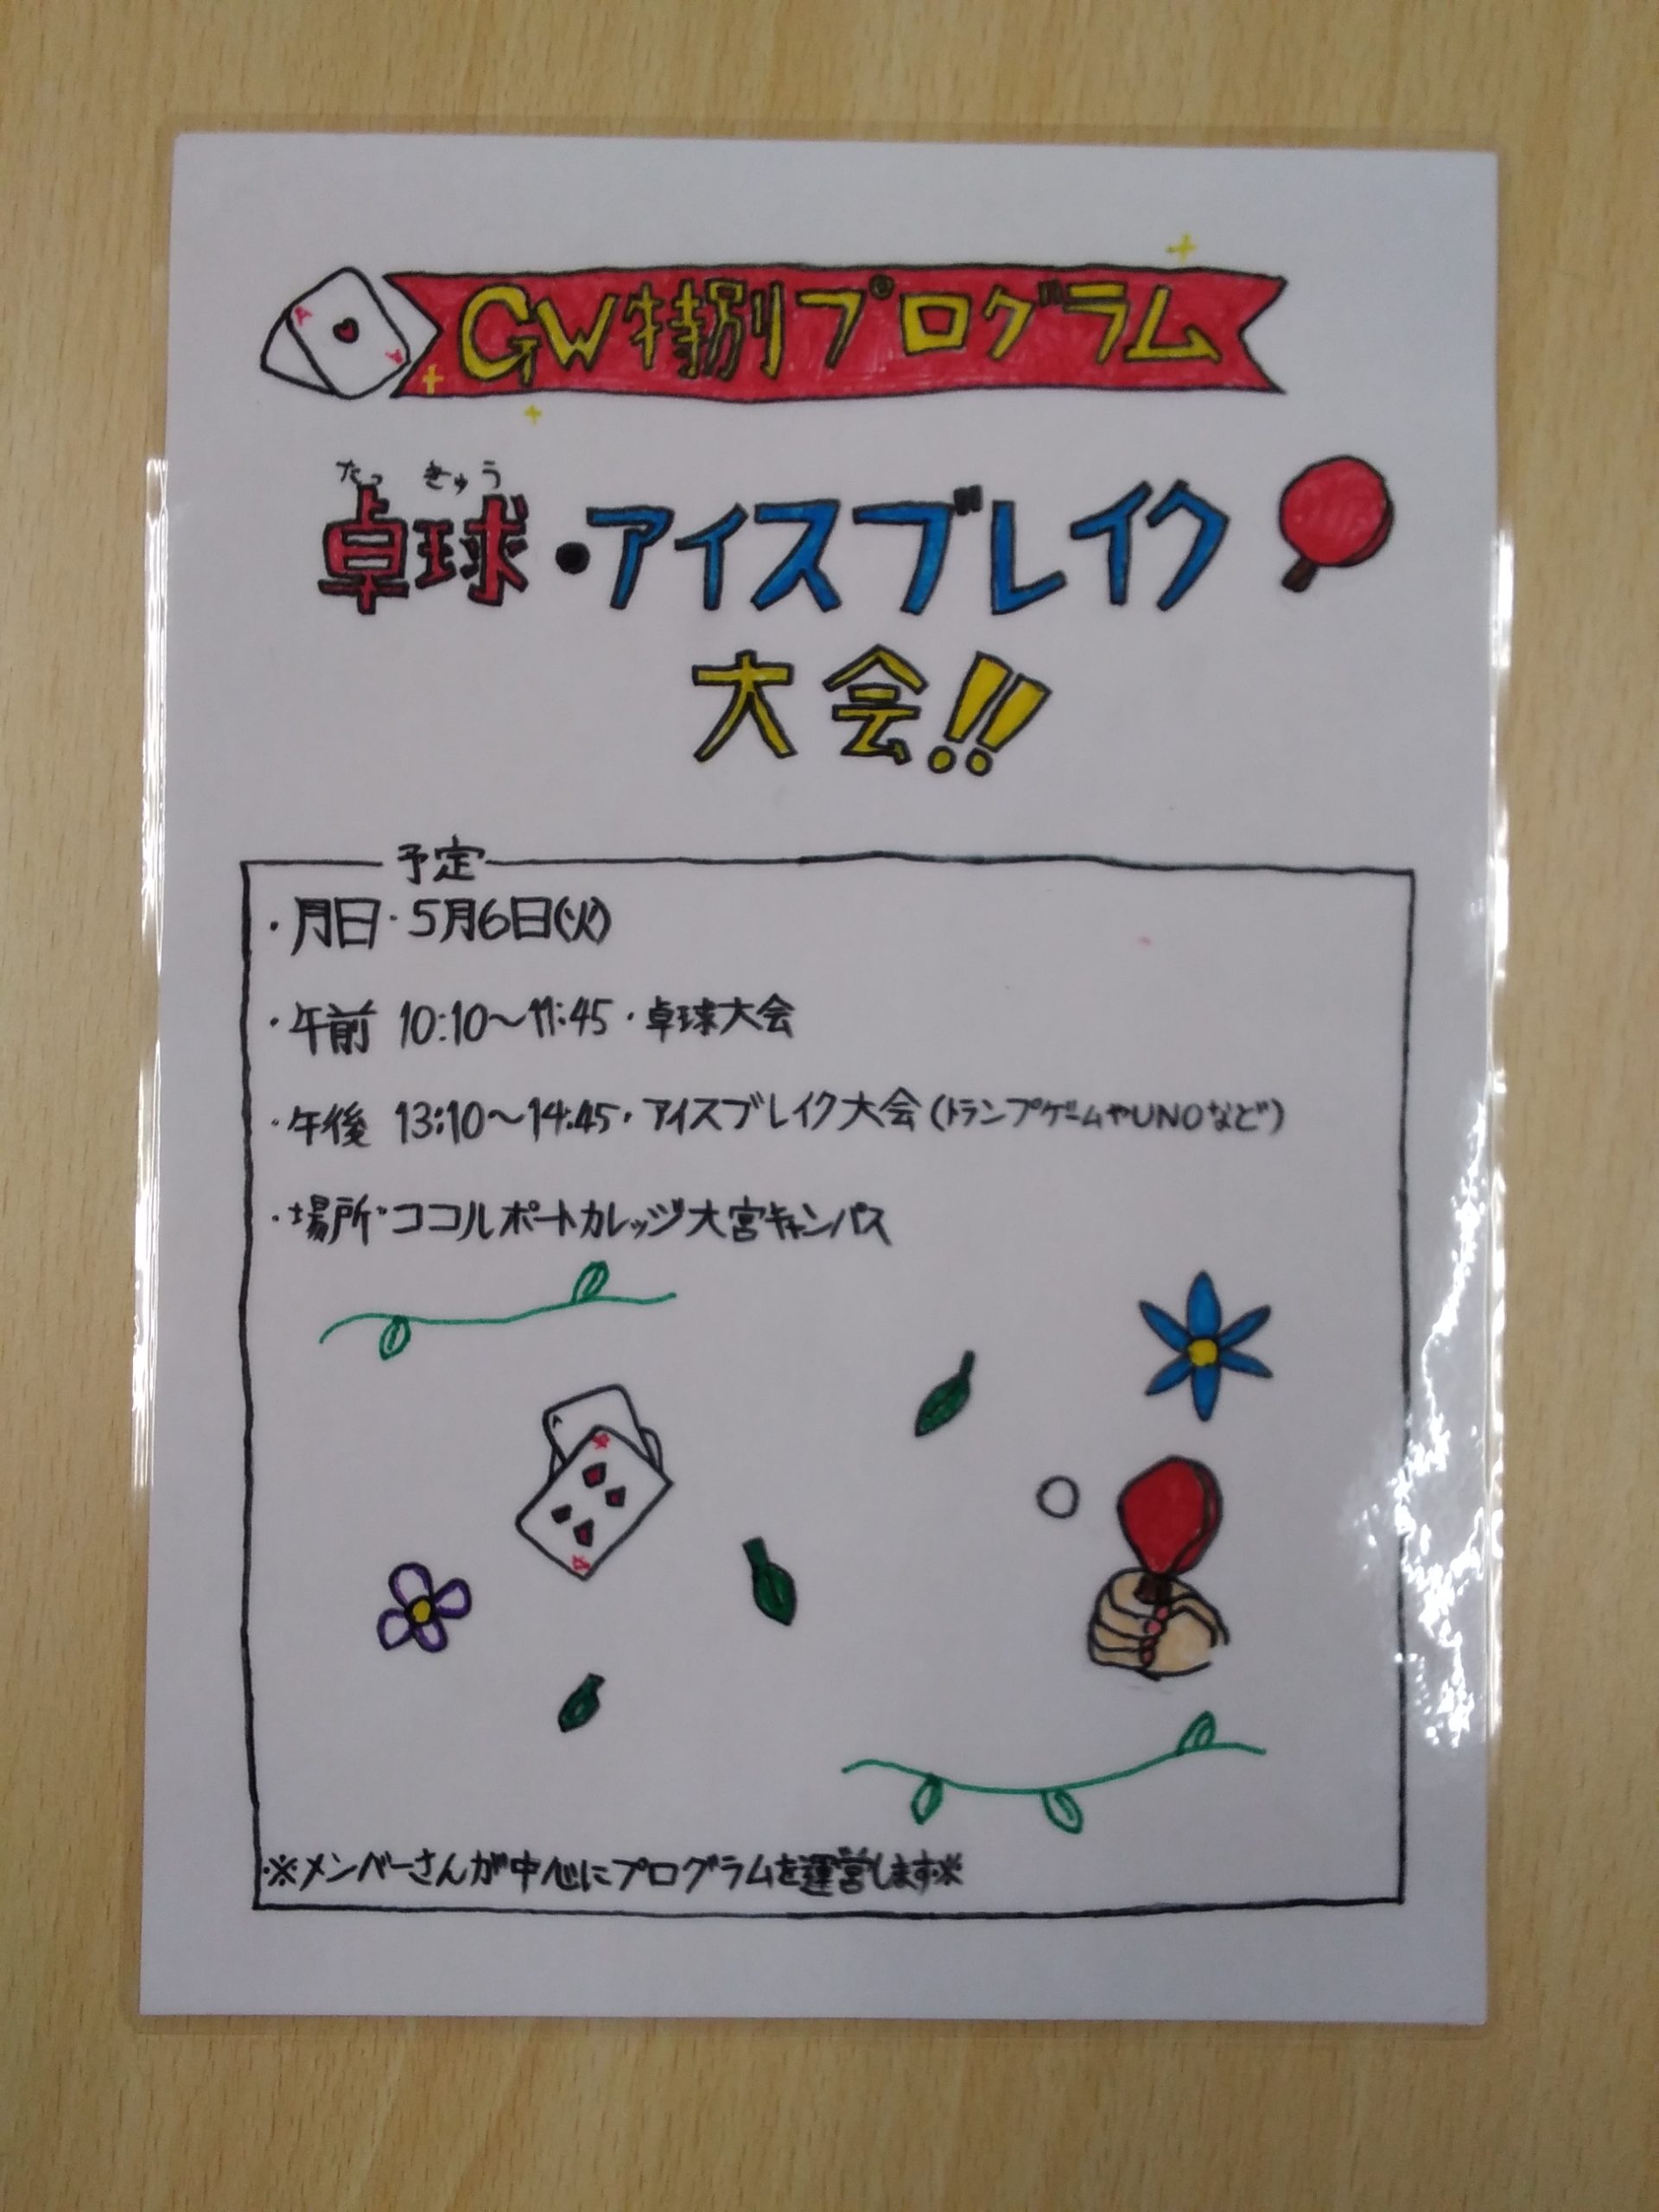 GW特別プログラム
たっ きゅう
卓球・アイスブレイク
大会!!
予定
・月日・5月6日(火)
・午前 10:10〜11:45・卓球大会
・午後 13:10〜14:45・アイスブレイク大会(トランプゲームやUNOなど)
・場所・ココルポートカレッジ大宮キャンパス
※メンバーさんが中心にプログラムを運営します※